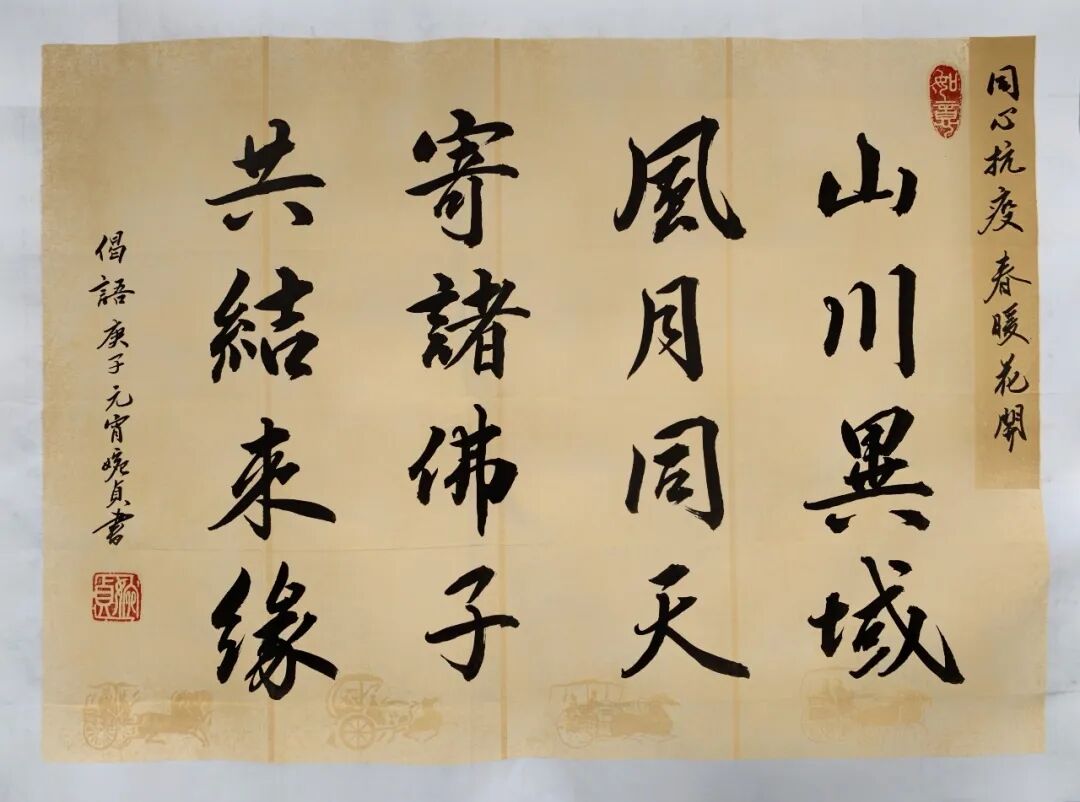 同心抗疫 春暖花開
如意
山川異域
風月同天
寄諸佛子
共結來緣
偈語 庚子元宵婉貞書
婉貞